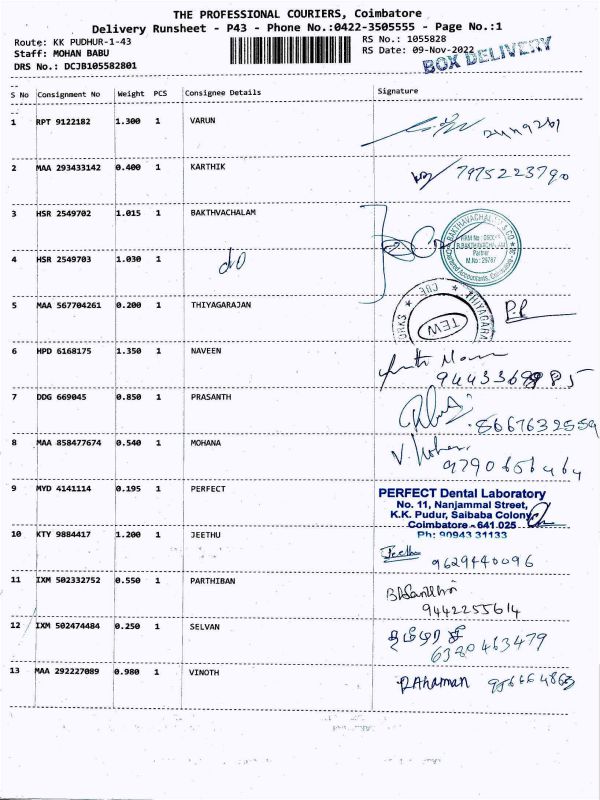 THE PROFESSIONAL COURIERS, Coimbatore
Delivery Runsheet - P43 - Phone No.:0422-3505555 - Page No.:1
Route: KK PUDHUR-1-43 RS No.: 1055828
Staff: MOHAN BABU RS Date: 09-Nov-2022
BOX DELIVERY
DRS No.: DCJB105582801
S No Consignment No Weight PCS Consignee Details Signature
1 RPT 9122182 1.300 1 VARUN
2 MAA 293433142 0.400 1 KARTHIK 7975223790
3 HSR 2549702 1.015 1 BAKTHVACHALAM
4 HSR 2549703 1.030 1 do
5 MAA 567704261 0.200 1 THIYAGARAJAN
TEW
P.P
6 HPD 6168175 1.350 1 NAVEEN
7 DDG 669045 0.850 1 PRASANTH 8667632559
8 MAA 858477674 0.540 1 MOHANA V. Mohan
9790656464
9 MYD 4141114 0.195 1 PERFECT PERFECT Dental Laboratory
No. 11, Nanjammal Street,
K.K. Pudur, Saibaba Colony,
Coimbatore - 641 025
Ph: 90943 31133
10 KTY 9884417 1.200 1 JEETHU Jeethu
9629440096
11 IXM 502332752 0.550 1 PARTHIBAN
9442255614
12 IXM 502474484 0.250 1 SELVAN
6380463479
13 MAA 292227089 0.980 1 VINOTH RAhaman